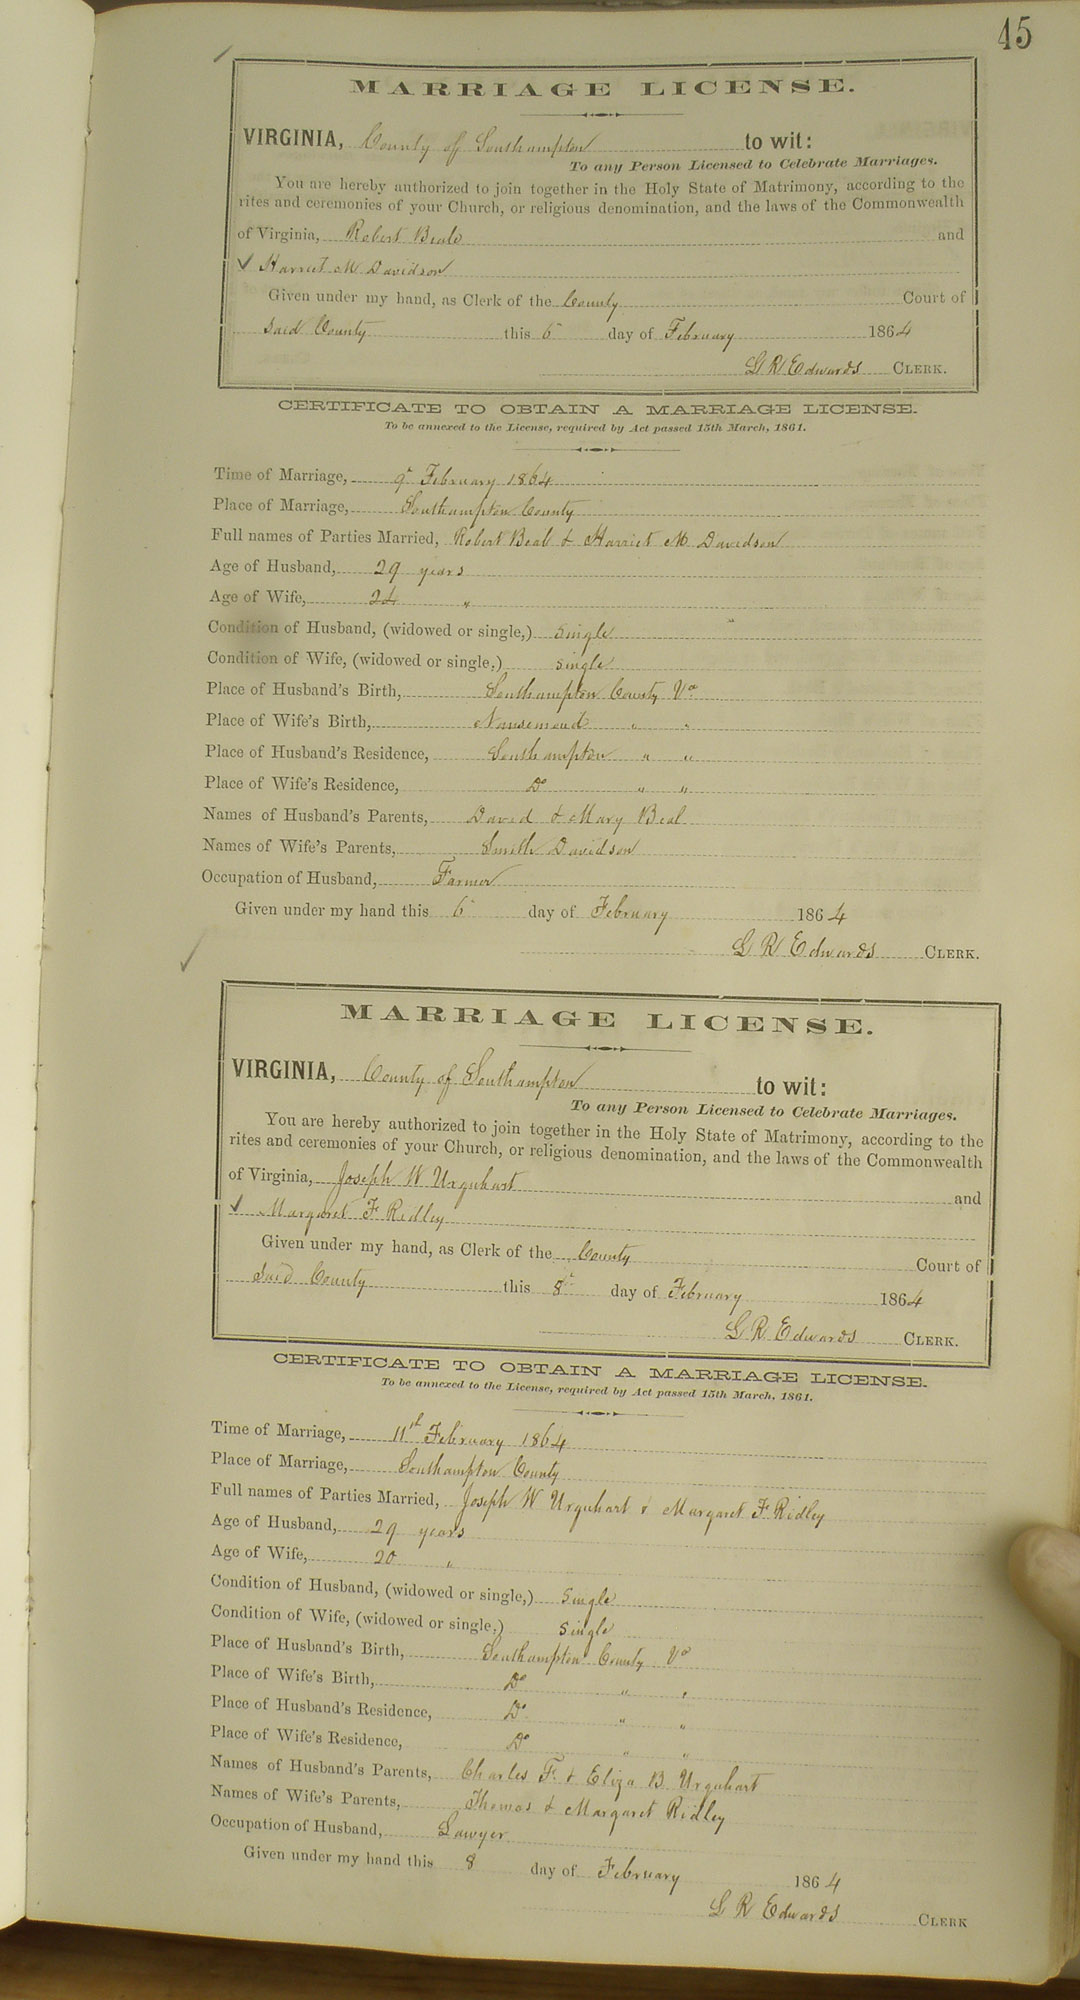 45
MARRIAGE LICENSE.
VIRGINIA, County of Southampton to wit:
To any Person Licensed to Celebrate Marriages.
You are hereby authorized to join together in the Holy State of Matrimony, according to the
rites and ceremonies of your Church, or religious denomination, and the laws of the Commonwealth
of Virginia, Robert Beale and
✓ Harriet M Davidson
Given under my hand, as Clerk of the County Court of
said County this 6 day of February 1864
L R Edwards CLERK.
CERTIFICATE TO OBTAIN A MARRIAGE LICENSE.
To be annexed to the License, required by Act passed 15th March, 1861.
Time of Marriage, 9th February 1864
Place of Marriage, Southampton County
Full names of Parties Married, Robert Beal & Harriet M Davidson
Age of Husband, 29 years
Age of Wife, 24 "
Condition of Husband, (widowed or single,) Single
Condition of Wife, (widowed or single,) single
Place of Husband's Birth, Southampton County Va
Place of Wife's Birth, Nansemond " "
Place of Husband's Residence, Southampton " "
Place of Wife's Residence, Do " "
Names of Husband's Parents, David & Mary Beal
Names of Wife's Parents, Smith Davidson
Occupation of Husband, Farmer
Given under my hand this 6 day of February 1864
L R Edwards CLERK.
MARRIAGE LICENSE.
VIRGINIA, County of Southampton to wit:
To any Person Licensed to Celebrate Marriages.
You are hereby authorized to join together in the Holy State of Matrimony, according to the
rites and ceremonies of your Church, or religious denomination, and the laws of the Commonwealth
of Virginia, Joseph W Urquhart and
✓ Margaret F Ridley
Given under my hand, as Clerk of the County Court of
said County this 8th day of February 1864
L R Edwards CLERK.
CERTIFICATE TO OBTAIN A MARRIAGE LICENSE.
To be annexed to the License, required by Act passed 15th March, 1861.
Time of Marriage, 11th February 1864
Place of Marriage, Southampton County
Full names of Parties Married, Joseph W Urquhart & Margaret F Ridley
Age of Husband, 29 years
Age of Wife, 20 "
Condition of Husband, (widowed or single,) Single
Condition of Wife, (widowed or single,) Single
Place of Husband's Birth, Southampton County Va
Place of Wife's Birth, Do " "
Place of Husband's Residence, Do " "
Place of Wife's Residence, Do " "
Names of Husband's Parents, Charles F. & Eliza B Urquhart
Names of Wife's Parents, Thomas & Margaret Ridley
Occupation of Husband, Lawyer
Given under my hand this 8 day of February 1864
L R Edwards CLERK